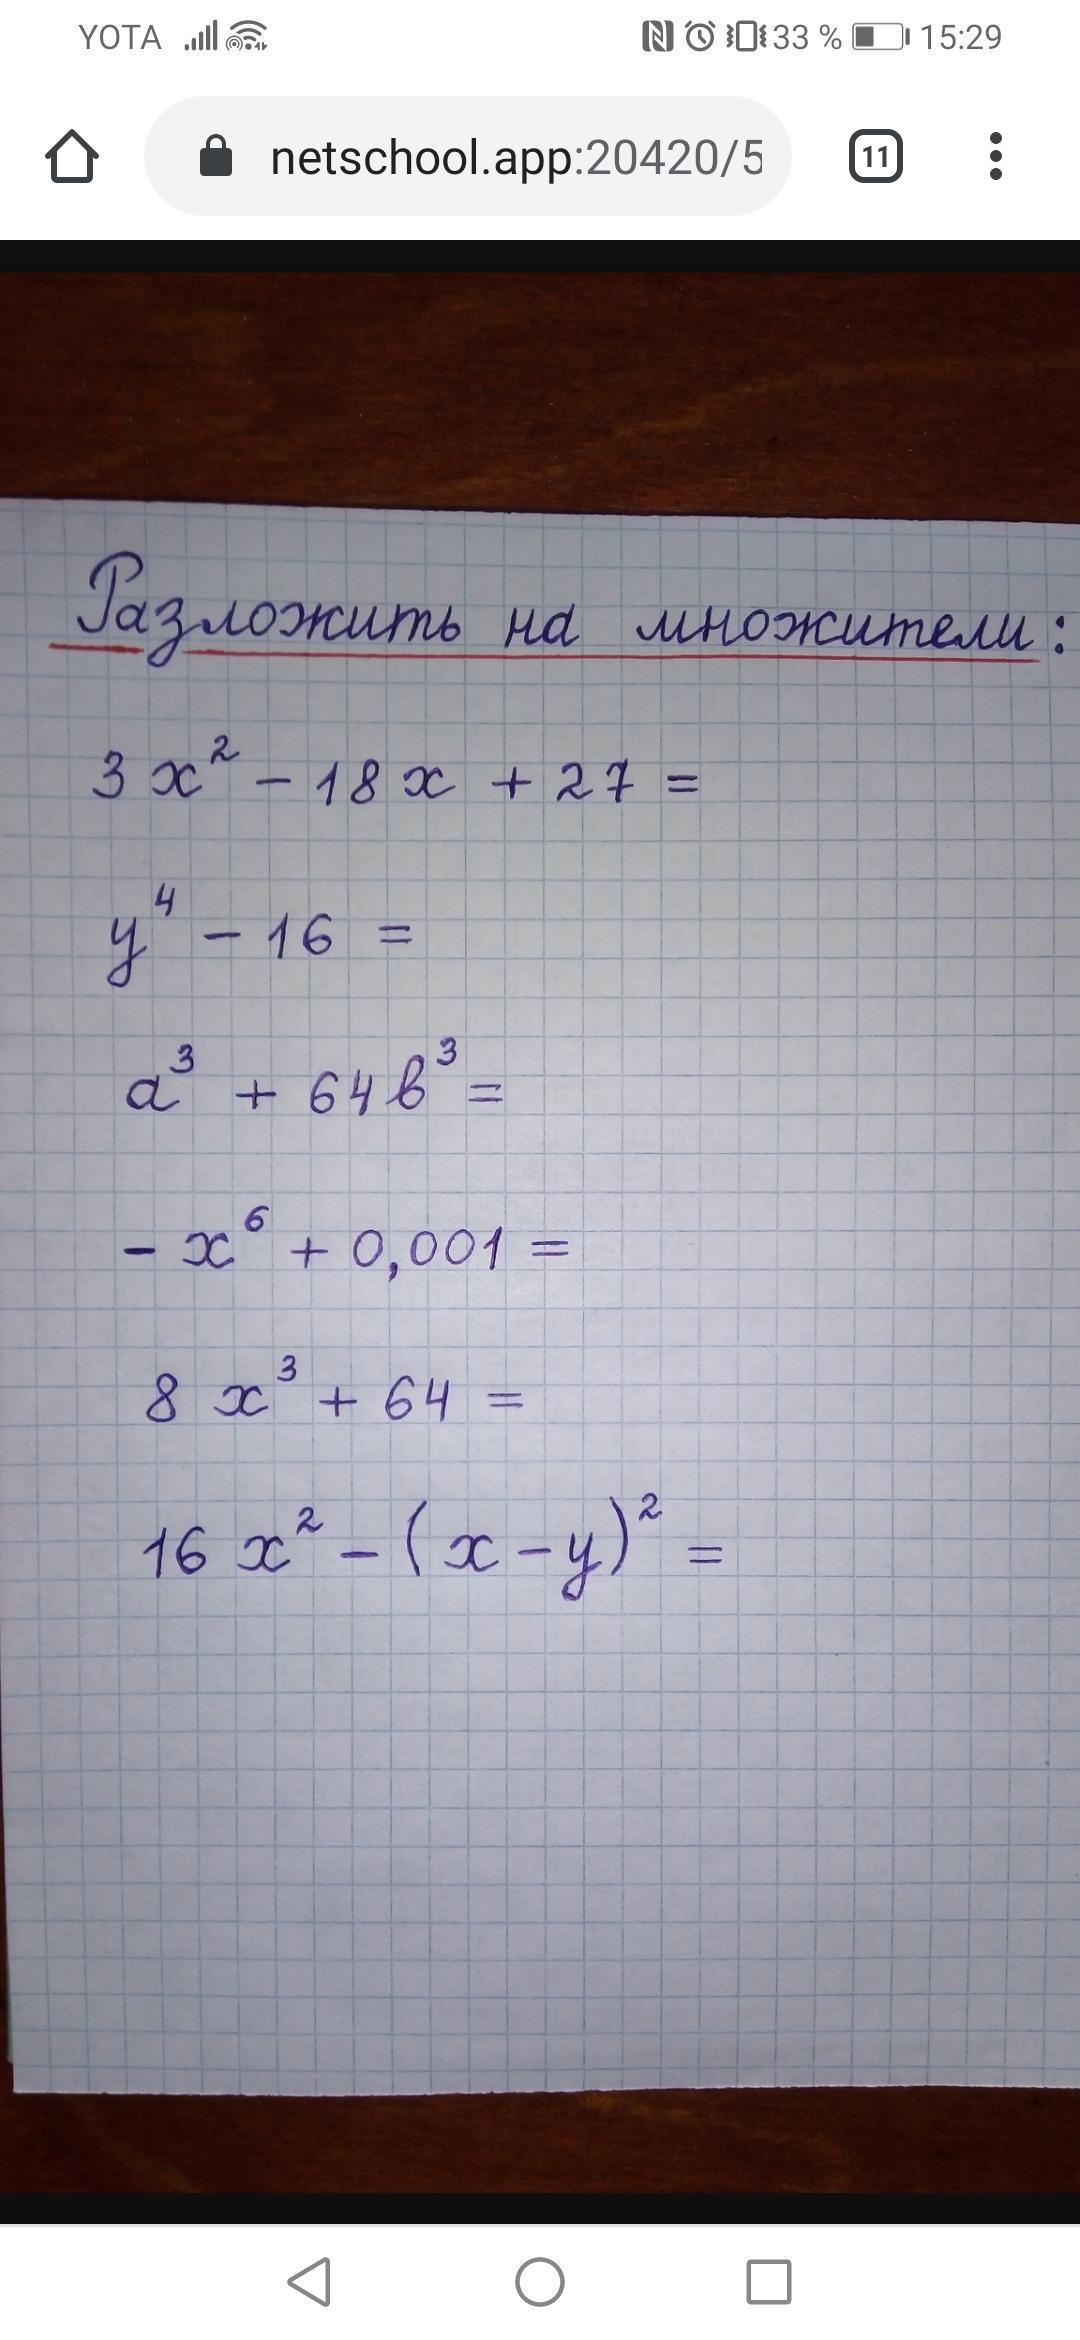 YOTA 33 % 15:29
netschool.app:20420/5 11
Разложить на множители:
3x² - 18x + 27 =
y⁴ - 16 =
a³ + 64b³ =
- x⁶ + 0,001 =
8x³ + 64 =
16x² - (x - y)² =